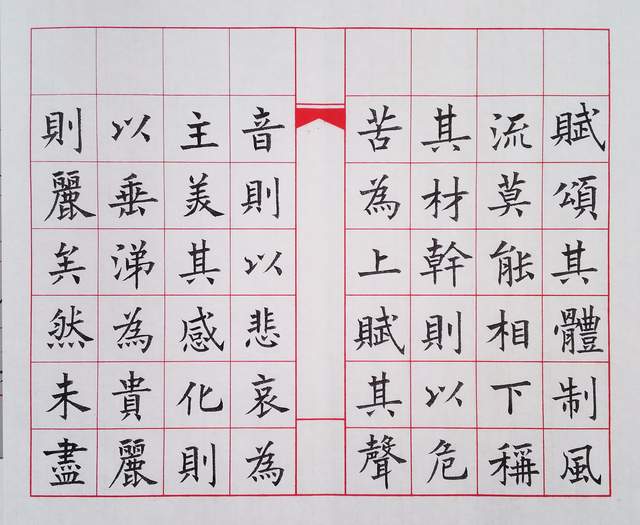 賦頌其體制風
流莫能相下稱
其材幹則以危
苦為上賦其聲
音則以悲哀為
主美其感化則
以垂涕為貴麗
則麗矣然未盡